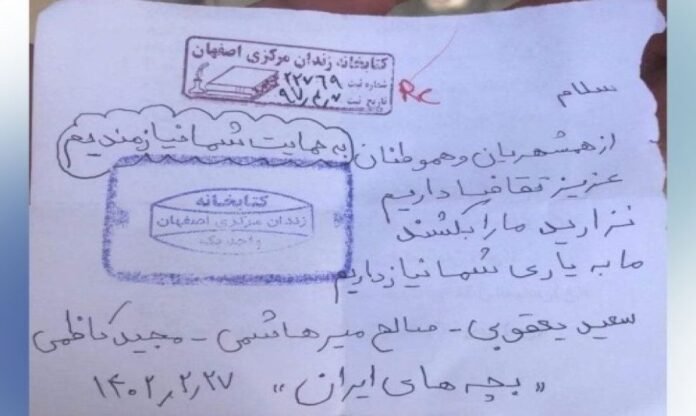 کتابخانه زندان مرکزی اصفهان
شماره ثبت ۲۲۷۶۹
تاریخ ثبت ۹۷/۲/۷
RC
سلام
از همشهریان و هموطنان به حمایت شما نیازمندیم
عزیز تقاضا داریم
نزارید ما را بکشند
ما به یاری شما نیاز داریم
کتابخانه
زندان مرکزی اصفهان
واحد یک
سعید یعقوبی - صالح میرهاشمی - مجید کاظمی
«بچه های ایران» ۱۴۰۲٫۲٫۲۷